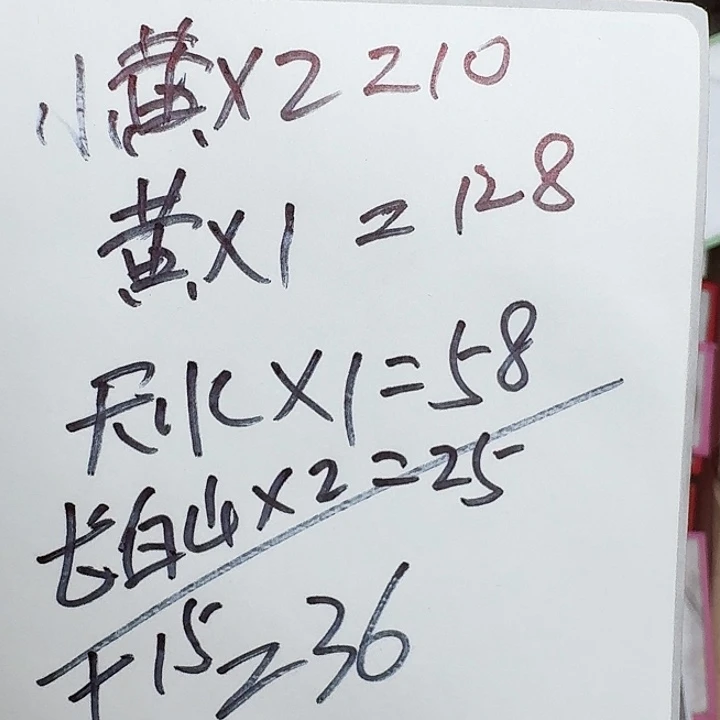 小黄X2 210
黄X1 = 128
天水X1=58
长白山X2=25
+15=36